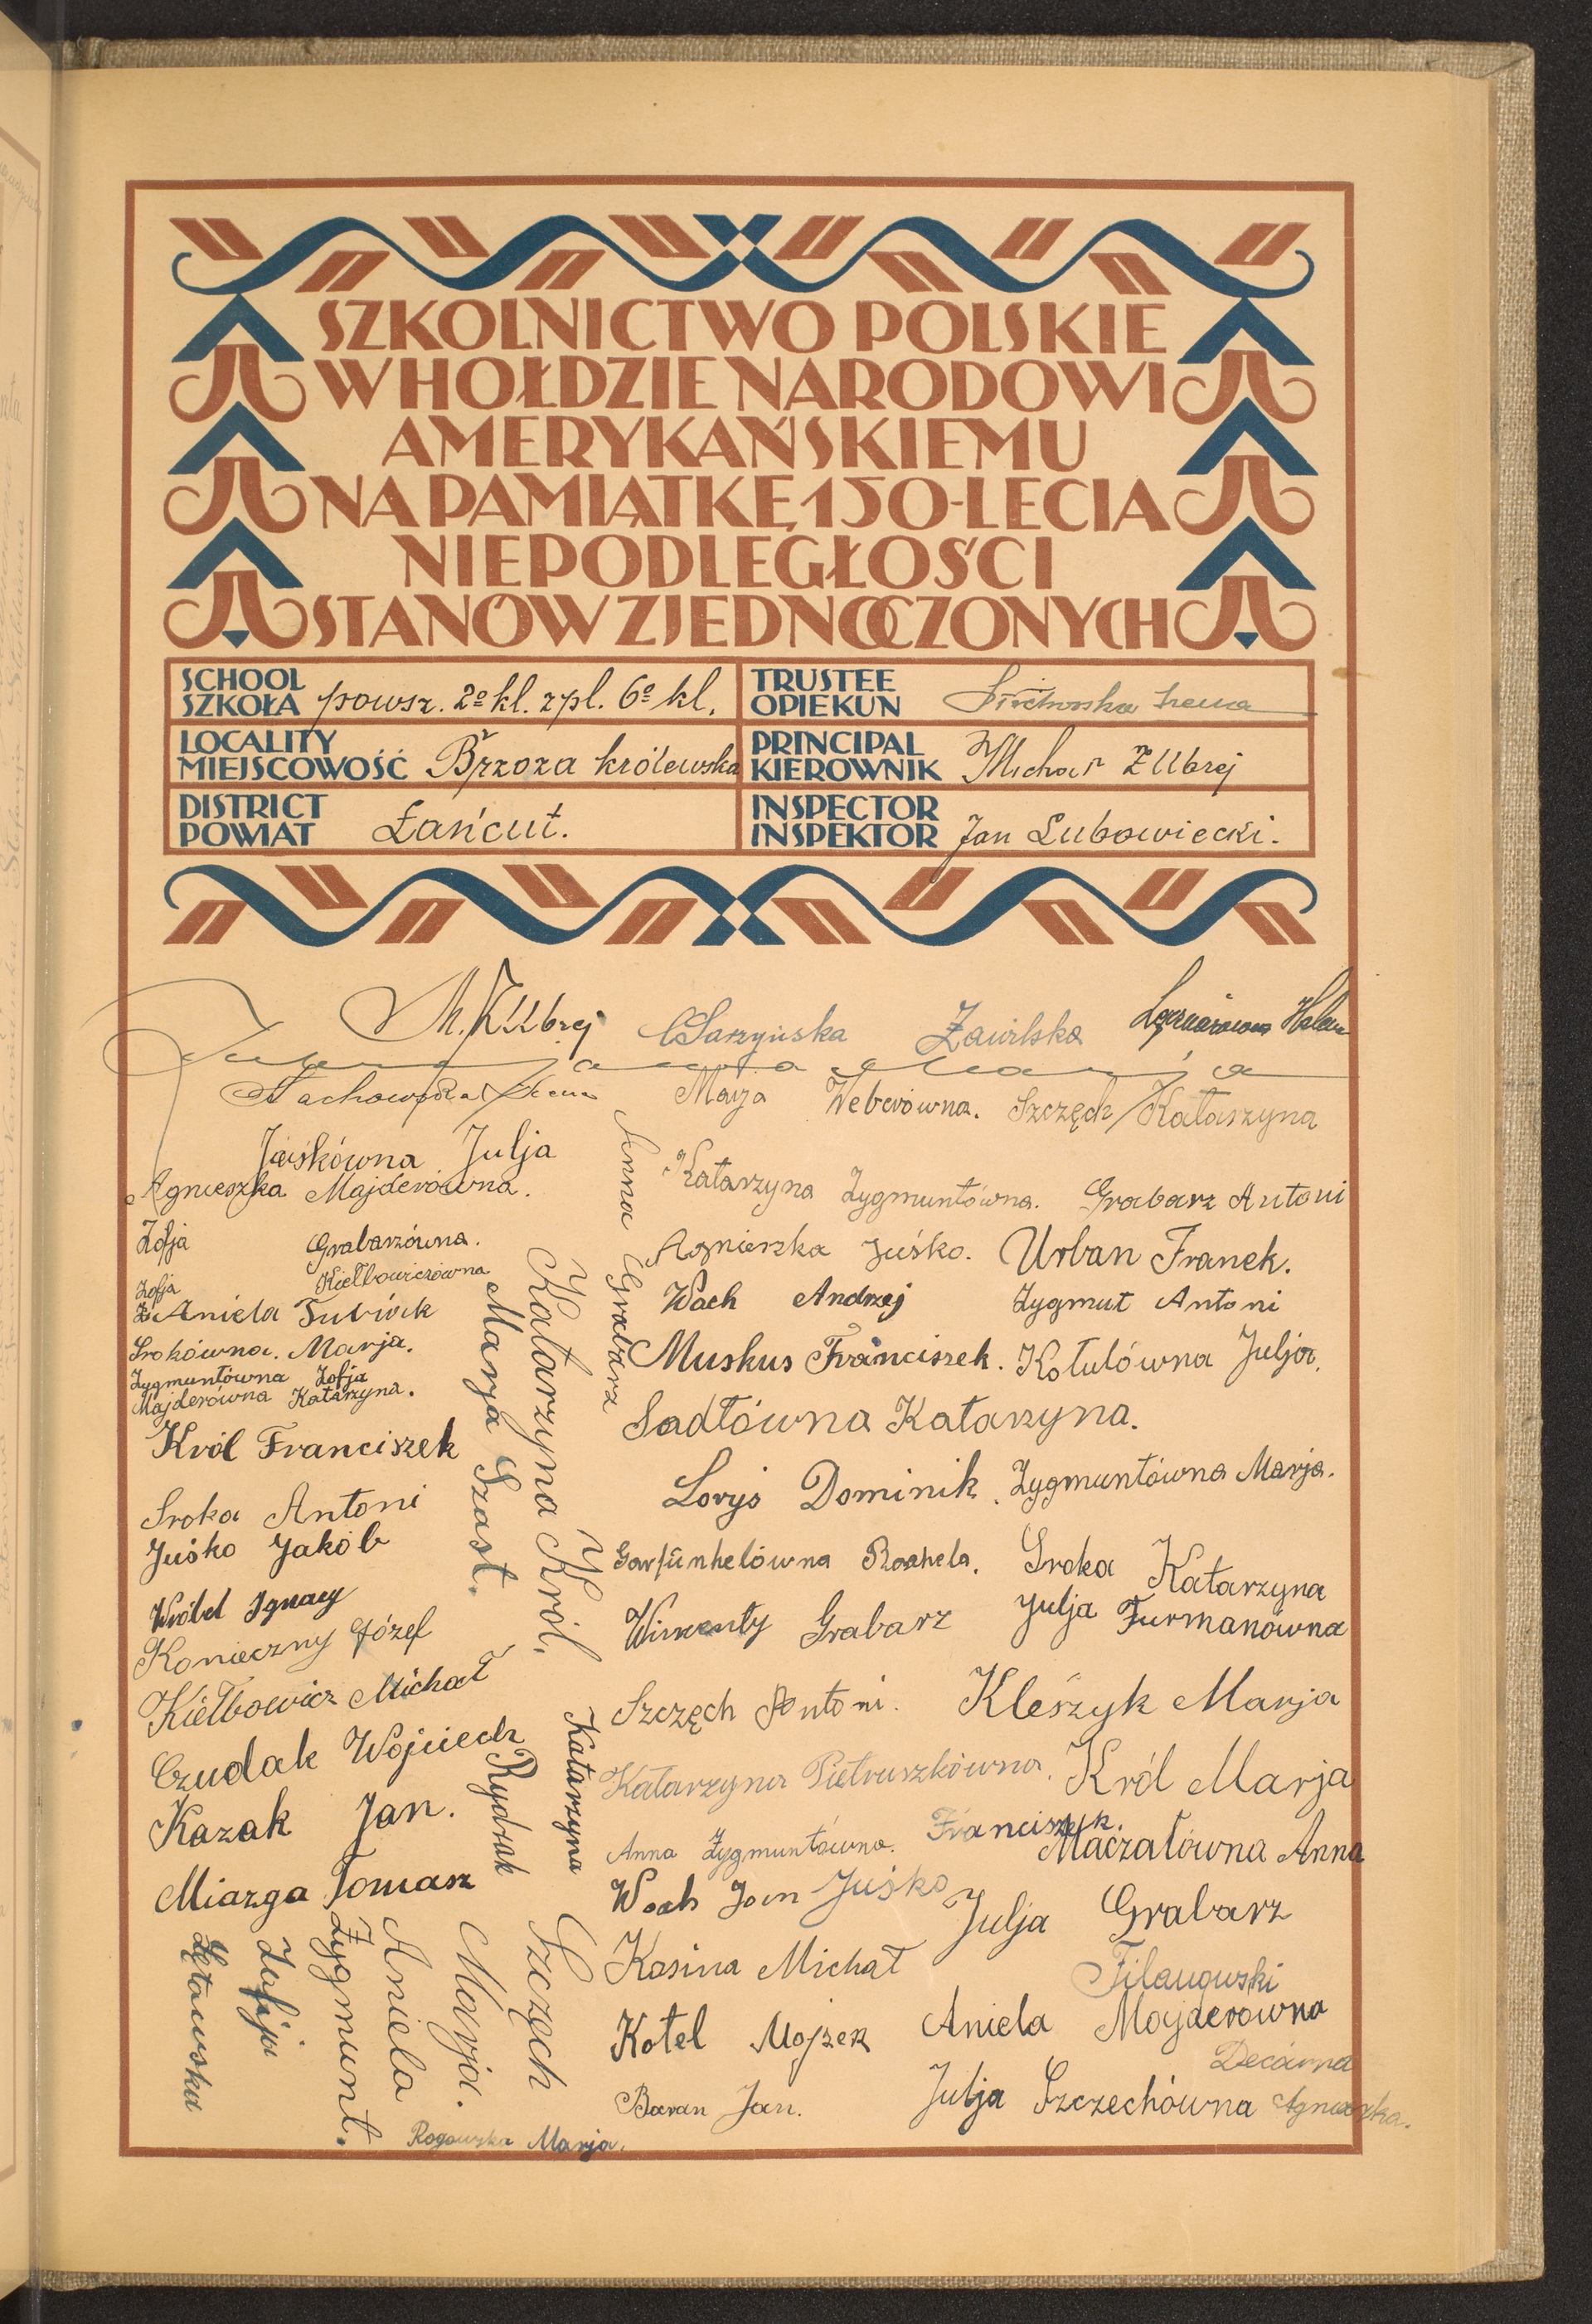 SZKOLNICTWO POLSKIE
W HOŁDZIE NARODOWI
AMERYKAŃSKIEMU
NA PAMIĄTKĘ 150-LECIA
NIEPODLEGŁOŚCI
STANÓW ZJEDNOCZONYCH
SCHOOL
SZKOŁA powsz. 2º kl. z pl. 6º kl.
TRUSTEE
OPIEKUN Irena
LOCALITY
MIEJSCOWOŚĆ Brzoza królewska
PRINCIPAL
KIEROWNIK Michał Zubrej
DISTRICT
POWIAT Łańcut.
INSPECTOR
INSPEKTOR Jan Lubowiecki.
M. Zubrej Sarzyńska Zawilska
Marja
Marja Weberówna. Szczęch Katarzyna
Jaśkówna Julja
Agnieszka Majderówna.
Zofja Grabarzówna.
Zofja Kiełbowiczówna
Aniela Tubiak
Srokówna. Marja.
Zygmuntówna Zofja
Majderówna Katarzyna.
Król Franciszek
Sroka Antoni
Juśko Jakób
Wróbel Ignacy
Konieczny Józef
Kiełbowicz Michał
Czudak Wojciech
Kazak Jan.
Miazga Tomasz
Zofija
Zygmunt.
Aniela
Marja.
Szczęch
Rogowska Marja.
Marja Szast.
Katarzyna Król.
Anna Grabarz
Katarzyna
Rydzak
Katarzyna Zygmuntówna. Grabarz Antoni
Agnieszka Juśko. Urban Franek.
Wach Andrzej Zygmut Antoni
Muskus Franciszek. Kotulówna Julja.
Sadłówna Katarzyna.
Loryś Dominik. Zygmuntówna Marja.
Garfünkelówna Rachela. Sroka Katarzyna
Wincenty Grabarz Julja Furmanówna
Szczęch Antoni. Kleszyk Marja
Katarzyna Pietruszkówna. Król Marja
Anna Zygmuntówna. Franciszek.
Maczałówna Anna
Wach Jan Juśko Julja Grabarz
Kosina Michał
Kotel Mojzek Aniela Majderówna
Baran Jan. Julja Szczechówna Agnieszka.